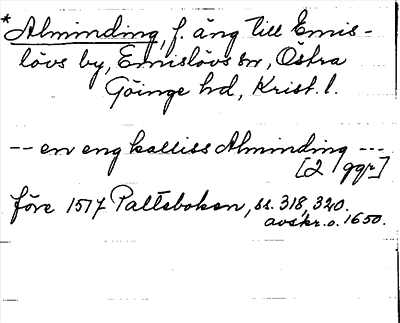 * Alminding, f. äng till Emis-
lövs by, Emislövs sn, Östra
Göinge hd, Krist. l.
-- en eng kalliss Alminding ---
[2 ggr]
före 1517 Palteboken, ss. 318, 320.
avskr. o. 1650.